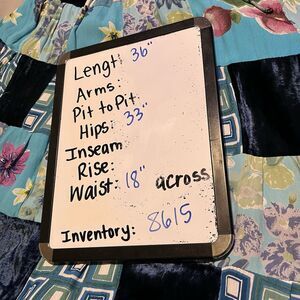 Lengt: 36"
Arms:
Pit to Pit
Hips: 33"
Inseam
Rise:
Waist: 18" across
Inventory: 8615